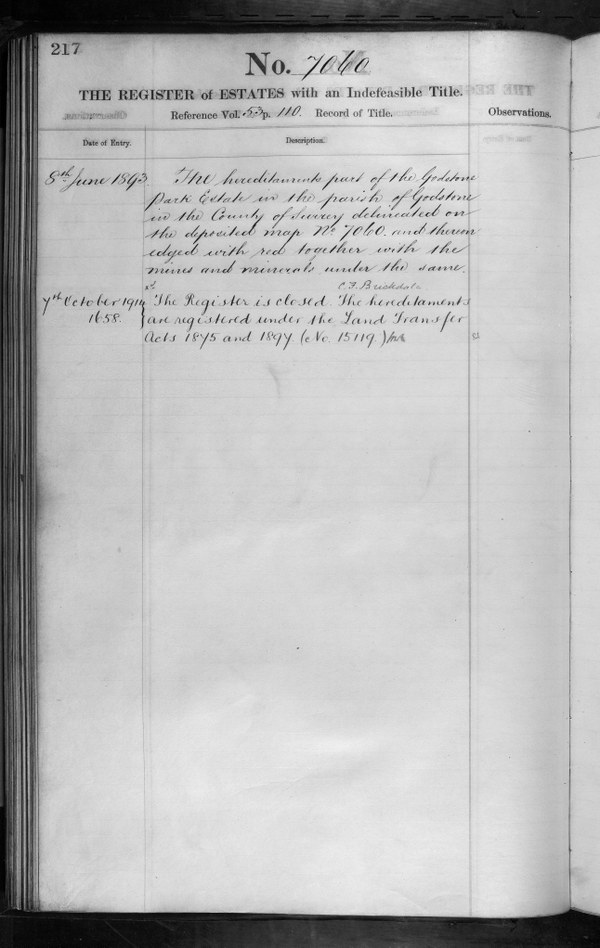 217
No. 7060
THE REGISTER of ESTATES with an Indefeasible Title.
Reference Vol. 53 p. 110. Record of Title.
Observations.
Date of Entry.
Description.
8th June 1893
The hereditaments part of the Godstone
Park Estate in the parish of Godstone
in the County of Surrey delineated on
the deposited map No. 7060. and thereon
edged with red together with the
mines and minerals under the same.
C. F. Brickdale
7th October 1914
1658.
The Register is closed. The hereditaments
are registered under the Land Transfer
Acts 1875 and 1897. (No. 15119.)